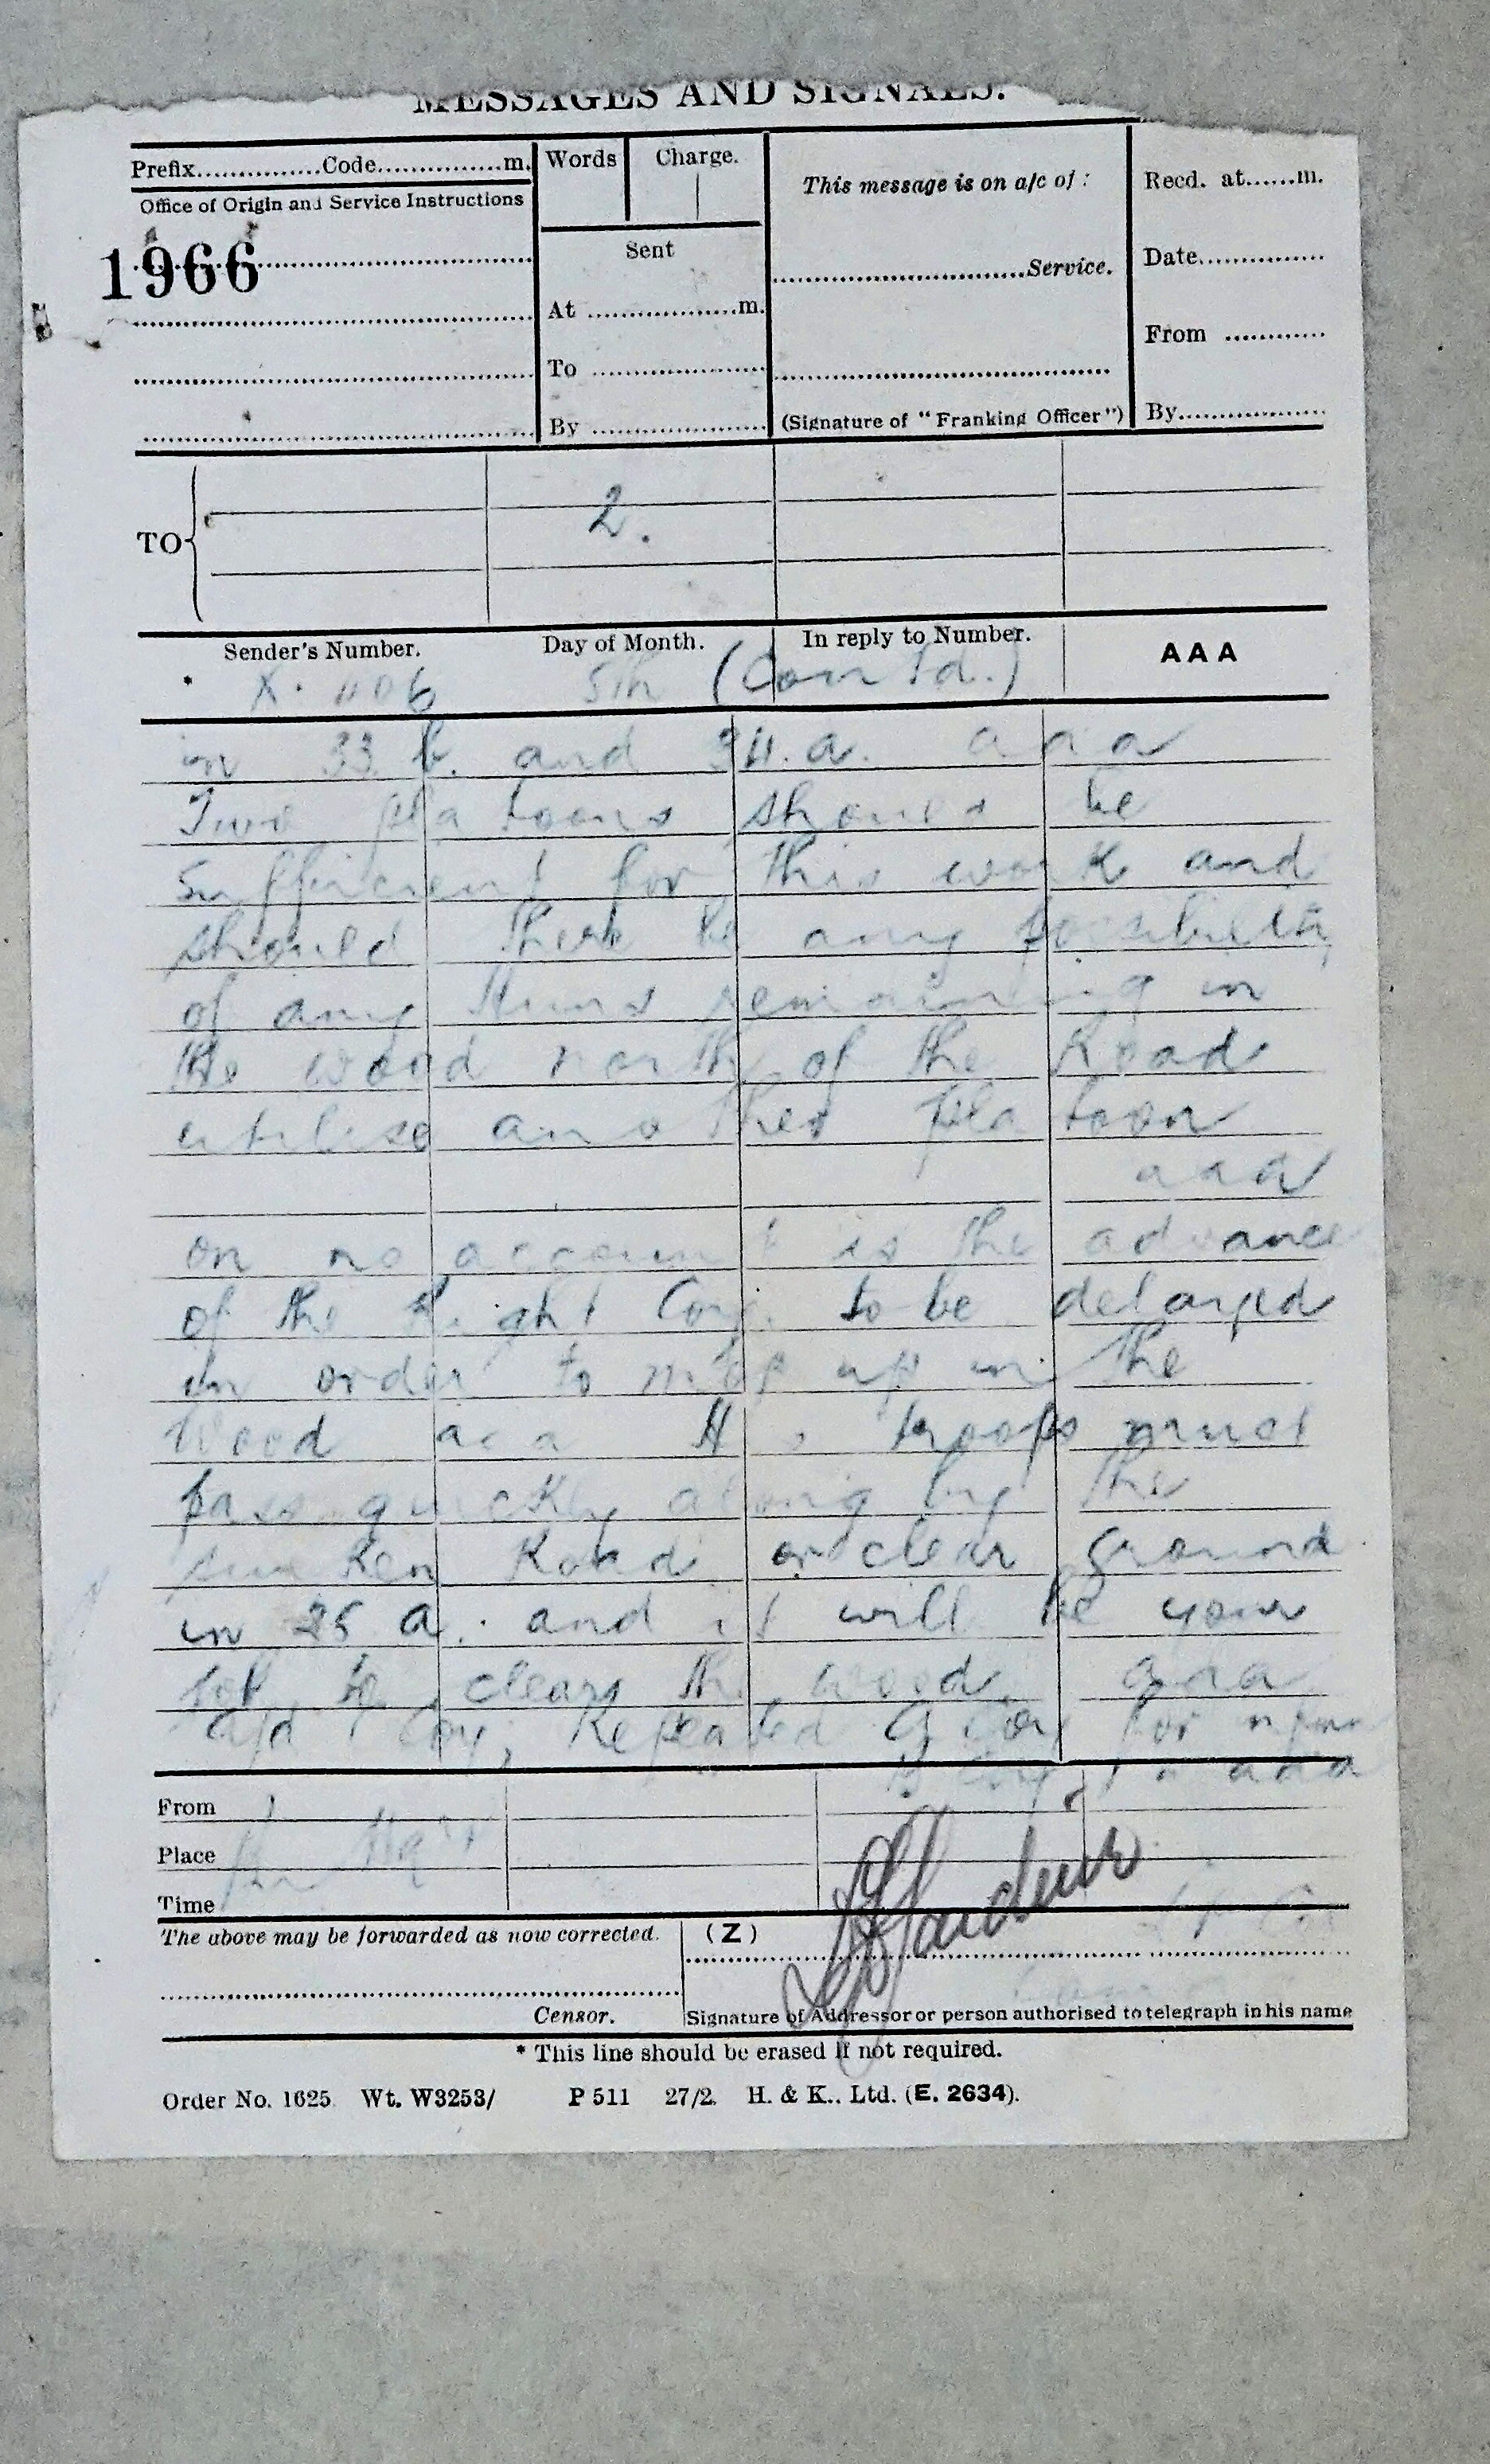 MESSAGES AND SIGNALS.
Prefix...............Code...............m.
Words
Charge.
This message is on a/c of :
Recd. at......m.
Office of Origin and Service Instructions
1966
Sent
...............................Service.
Date...............
At ..................m.
From ............
To .....................
By .....................
(Signature of "Franking Officer")
By..................
TO
2.
Sender's Number.
Day of Month.
In reply to Number.
AAA
5th (Contd.)
in 33 b. and 34.a. aaa
Two platoons should be
sufficient for this work and
should there be any possibility
of any Huns remaining in
the wood north of the Road
utilise another platoon
aaa
on no account is the advance
of the Right Coy. to be delayed
in order to mop up in the
Wood aaa troops must
pass quickly along by the
sunken Road or clear ground
in 35 a. and it will be your
job to clear the wood. aaa
Coy, Repeated Coy for
aaa
From
Place
Time
The above may be forwarded as now corrected.
(Z)
Censor.
Signature of Addressor or person authorised to telegraph in his name
* This line should be erased if not required.
Order No. 1625 Wt. W3253/ P 511 27/2. H. & K., Ltd. (E. 2634).